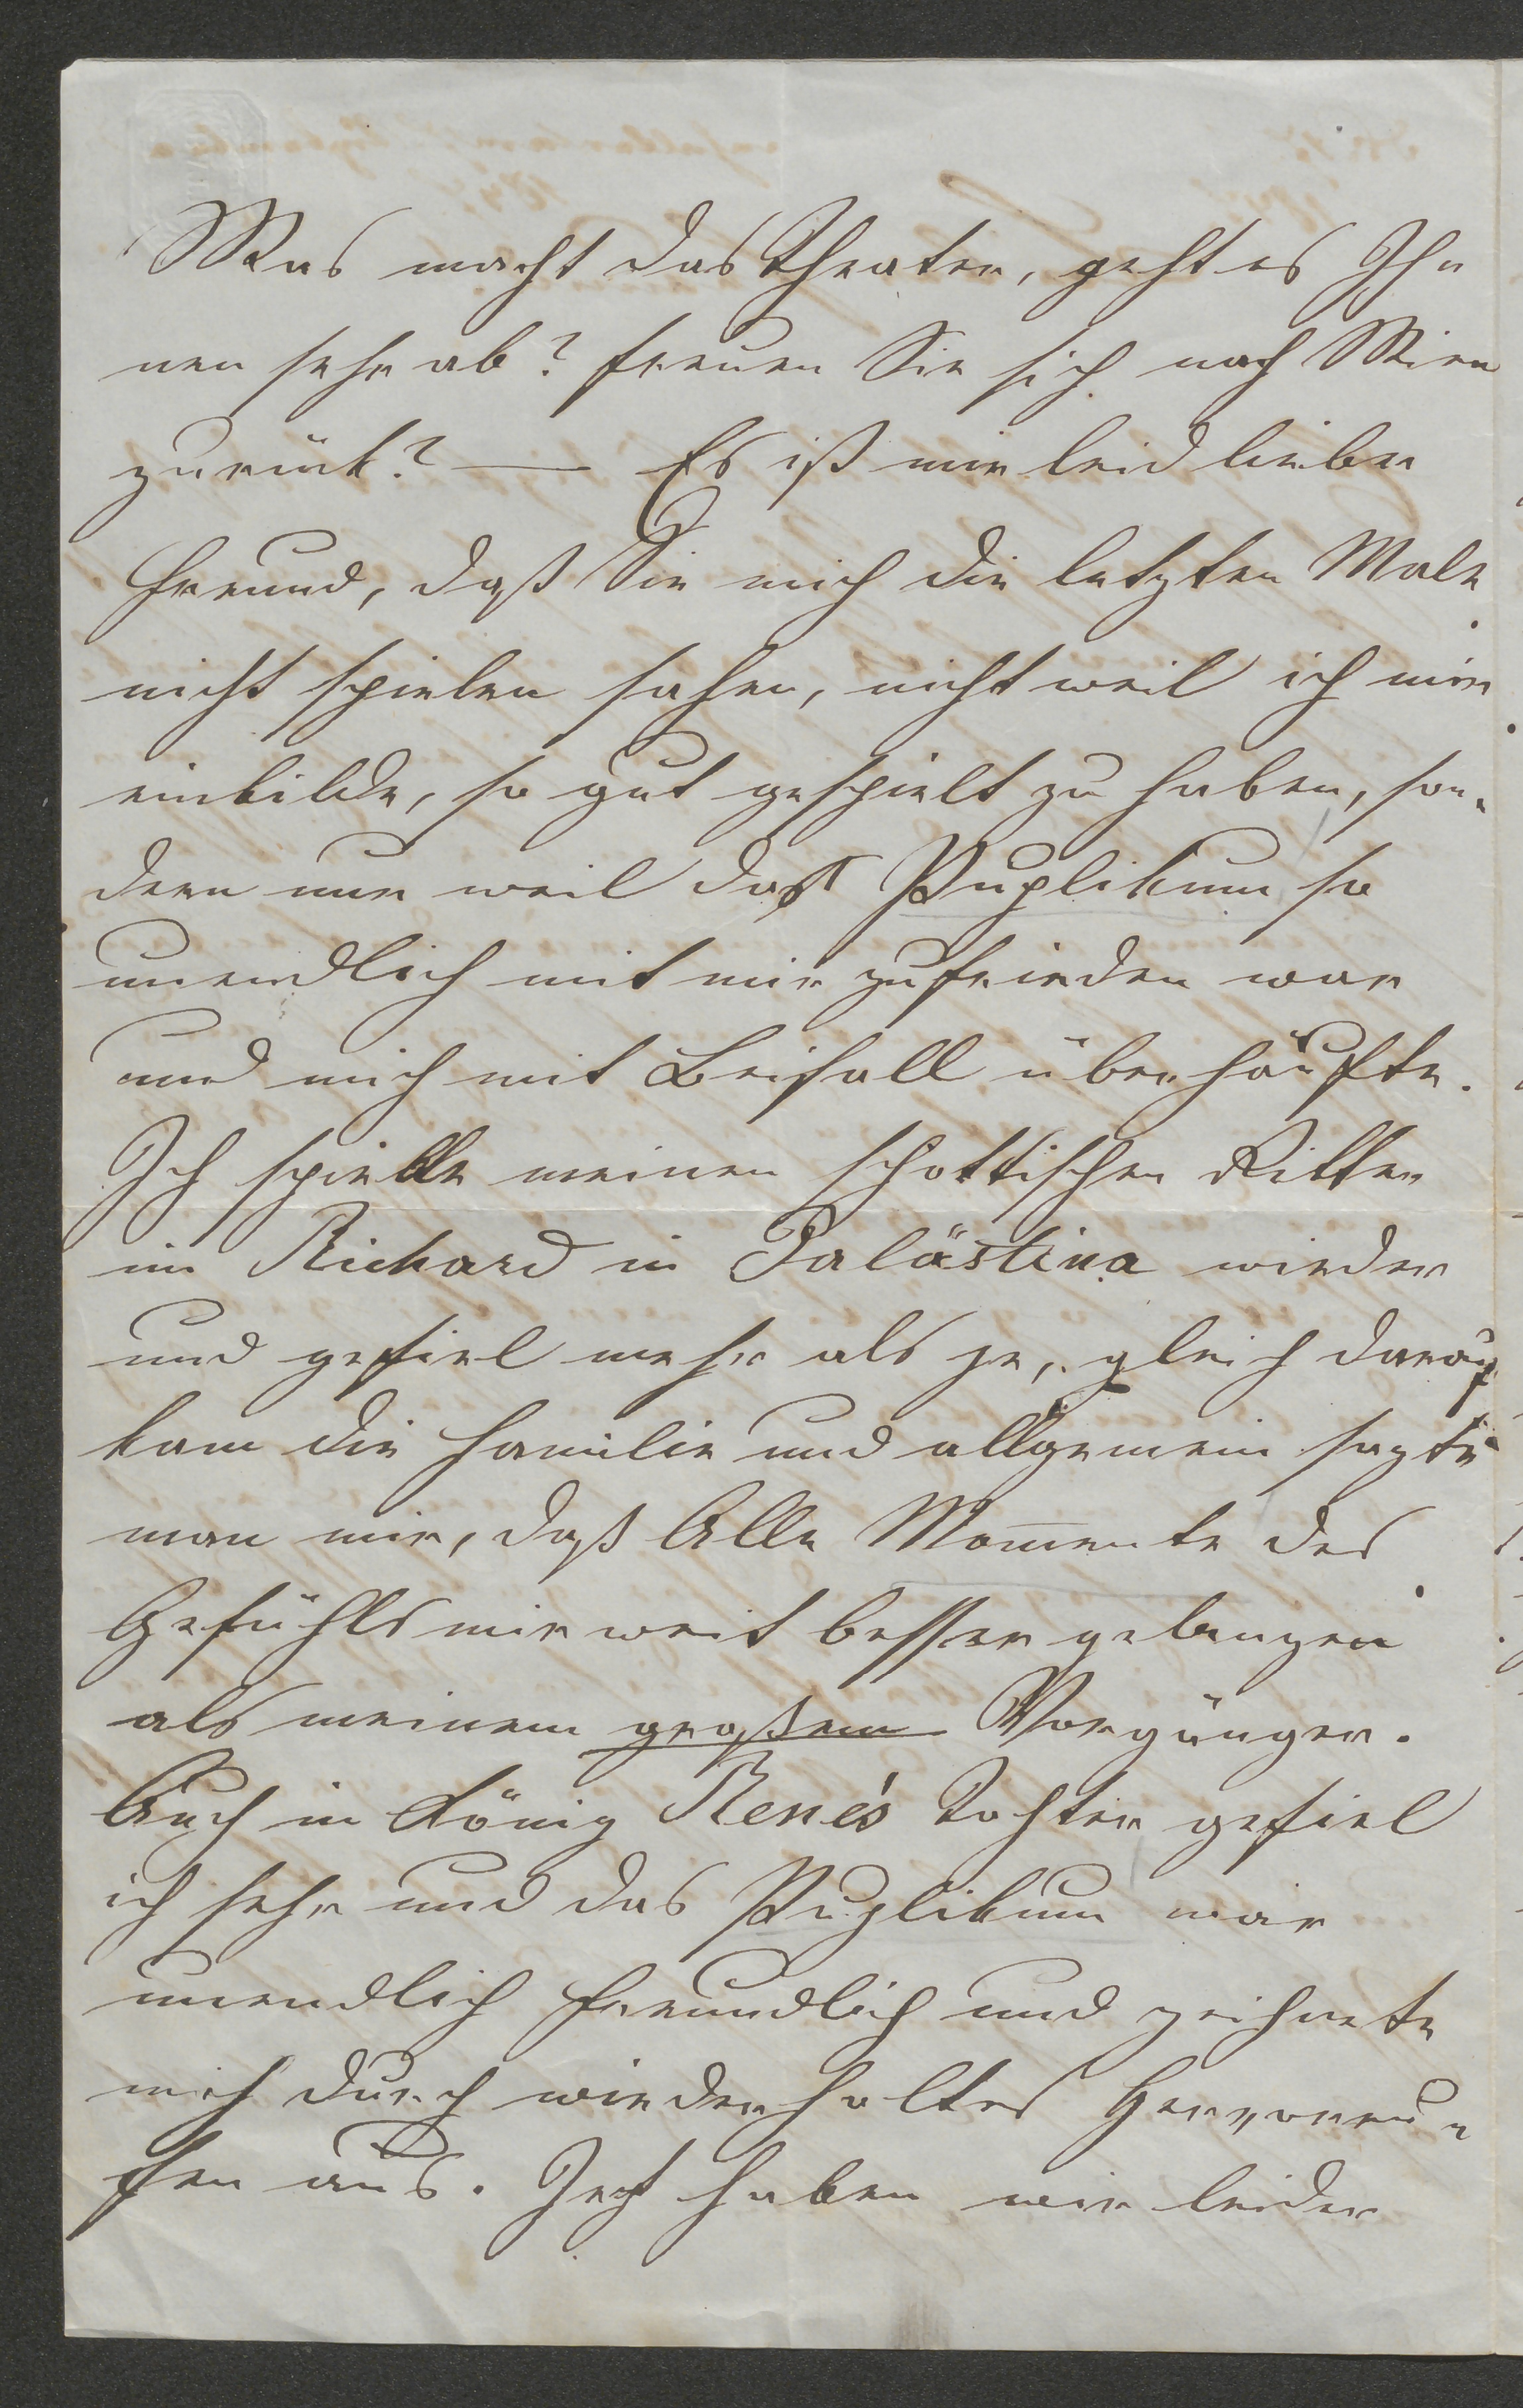 Was macht das Theater, geht es Ih-
nen sehr ab? freuen Sie sich nach Wien
zurück? — Es ist mir leid lieber
Freund, daß Sie mich die letzten Male
nicht spielen sahen, nicht weil ich mir
einbilde, so gut gespielt zu haben, son-
dern nur weil daß Puplikum so
unendlich mit mir zufrieden war
und mich mit Beifall überhäufte.
Ich spielte meinen schottischen Ritter
im Richard in Palästina wieder
und gefiel mehr als je, gleich darauf
kam die Familie und allgemein sagte
man mir, daß Alle Mom̅ente des
Gefühls mir weit besser gelangen
als meinem großem Vorgänger.
Auch in König René's Tochter gefiel
ich sehr und das Puplikum war
unendlich freundlich und zeichnete
mich durch wiederholtes Hervorru-
fen aus. Jezt haben wir leider